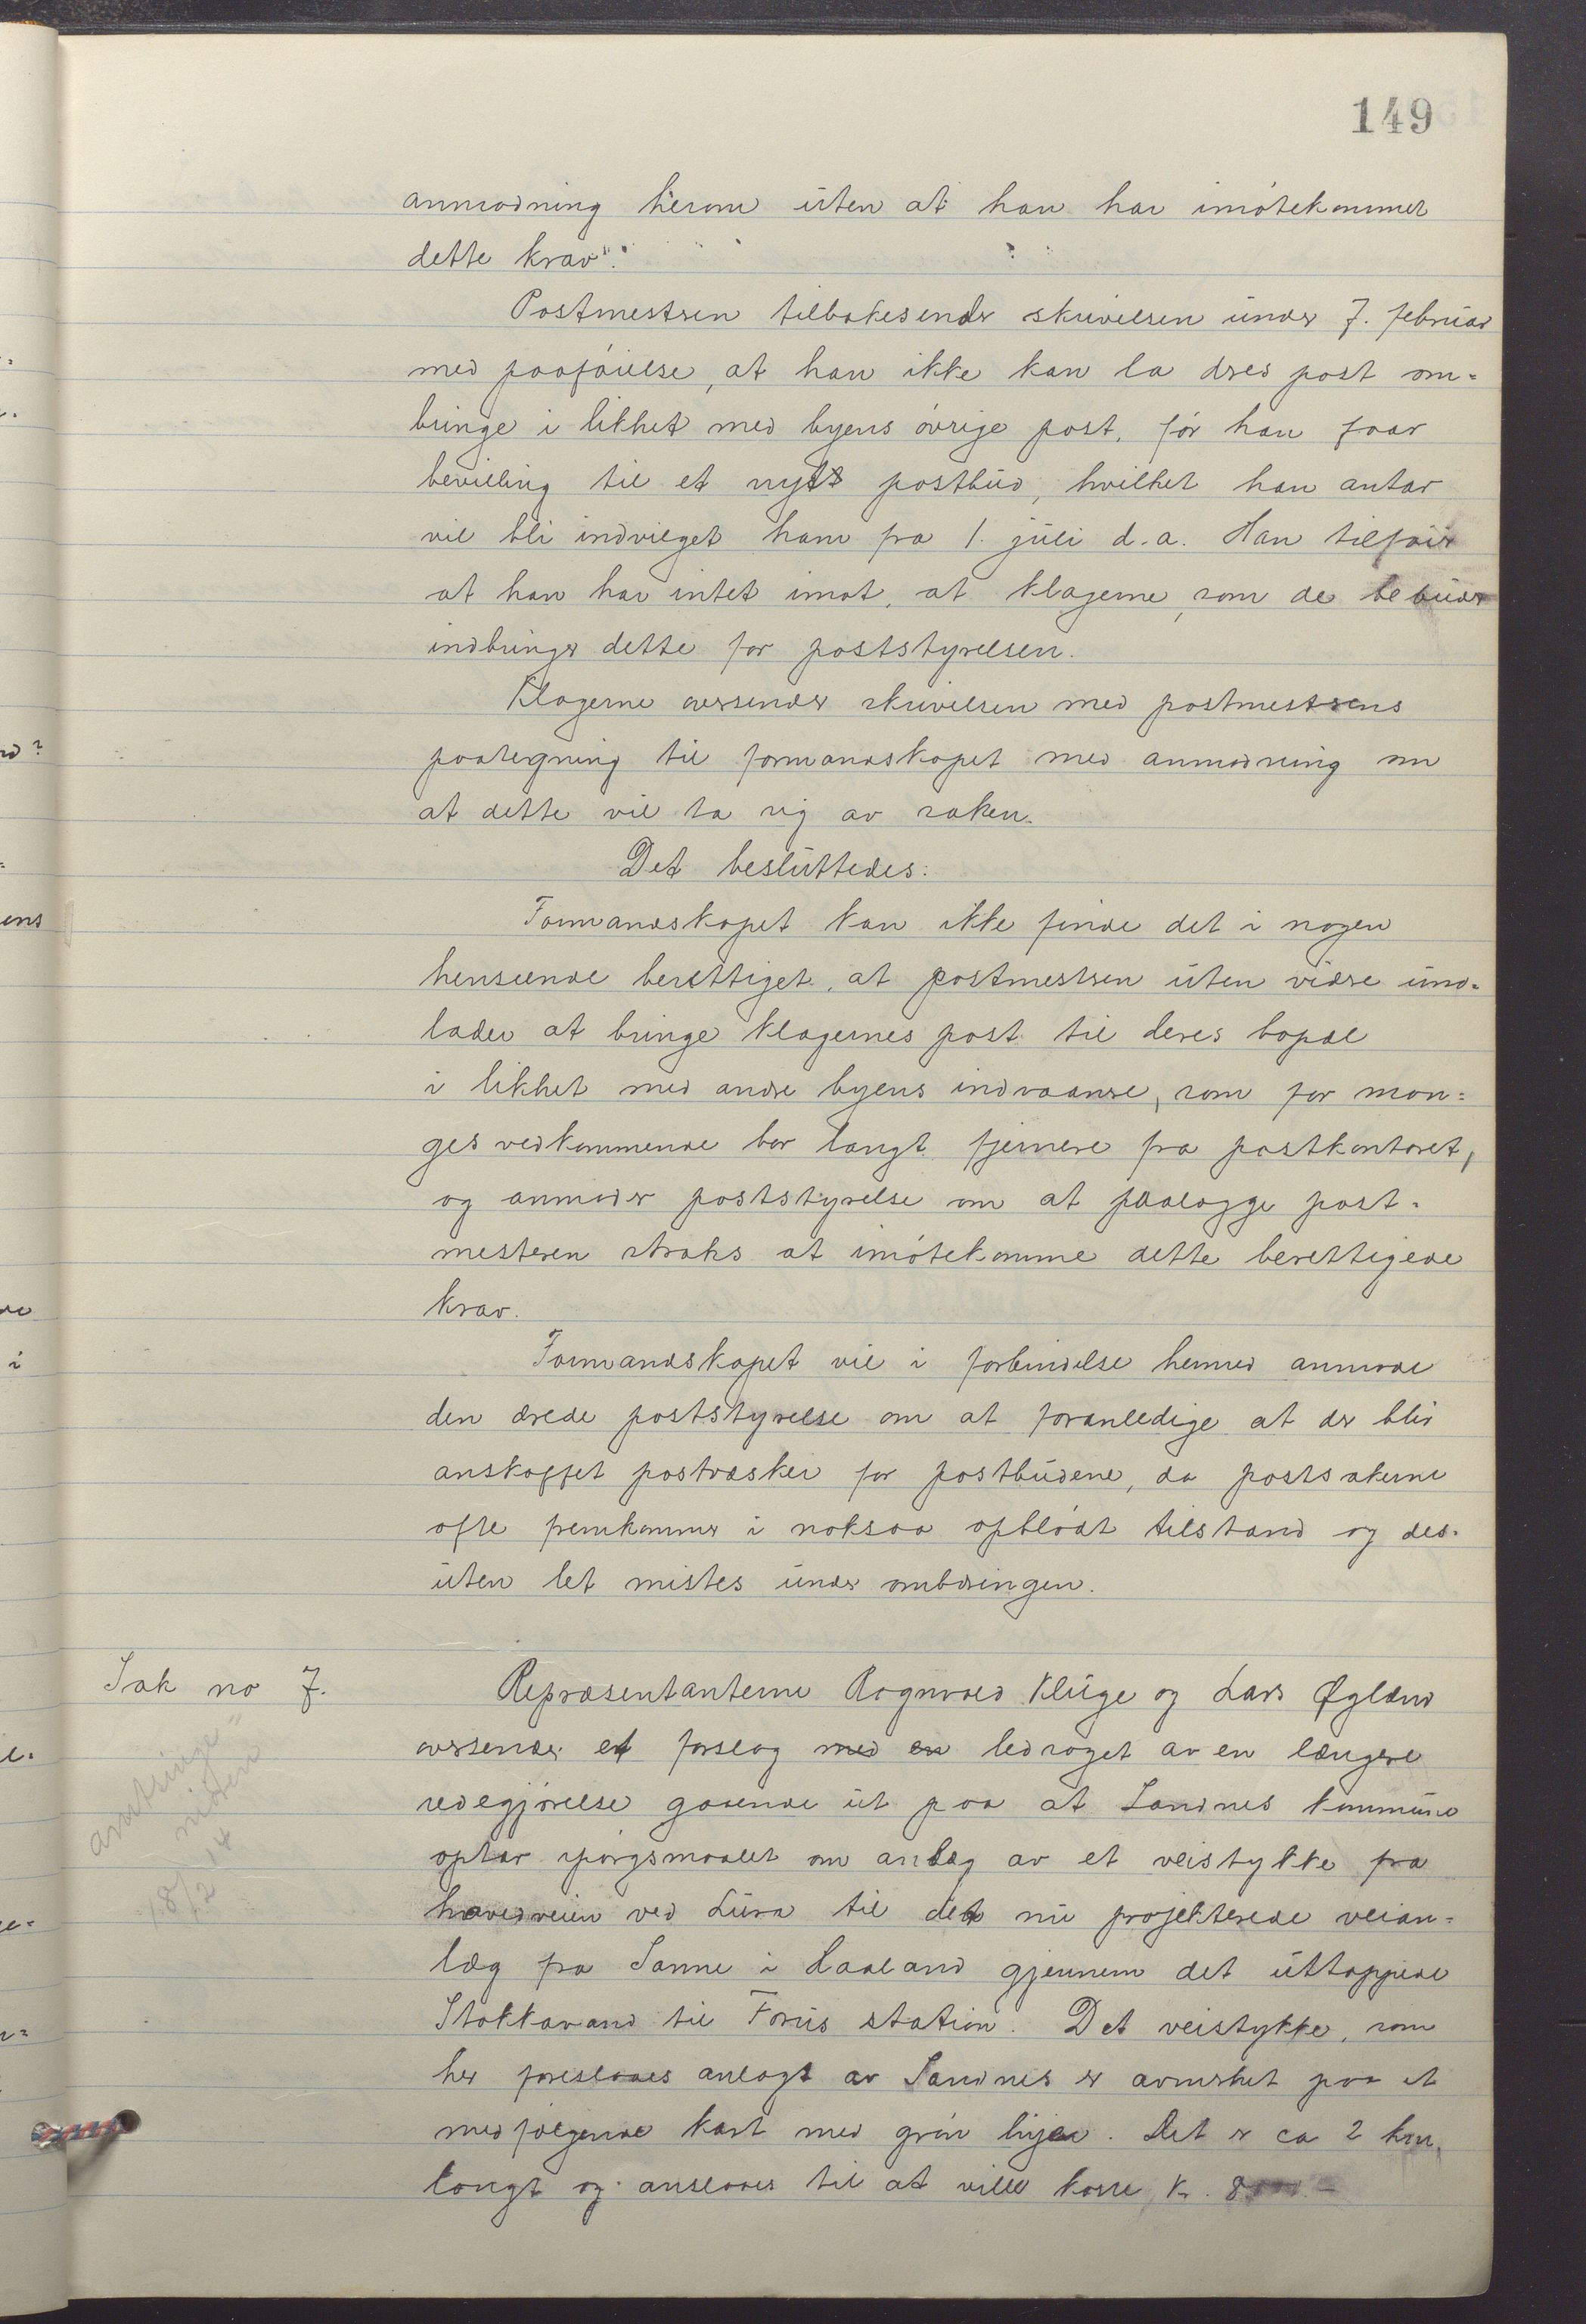 149
anmodning herom uten at han har imøtekommet
dette krav".
Postmesteren tilbakesender skrivelsen under 7. februar
med paaføielse, at han ikke kan la deres post om=
bringe i likhet med byens øvrige post, før han faar
bevilling til et nyt postbud, hvilket han antar
vil bli indvilget ham fra 1. juli d.a. Han tilføier
at han har intet imot, at klagerne, som de bebuder
indbringer dette for poststyrelsen.
Klagerne oversender skrivelsen med postmesterens
paategning til formandskapet med anmodning om
at dette vil ta sig av saken.
Det besluttedes:
Formandskapet kan ikke finde det i nogen
henseende berettiget, at postmesteren uten videre und=
lader at bringe klagernes post til deres bopæl
i likhet med andre byens indvaanere, som for man=
ges vedkommende bor langt fjernere fra postkontoret,
og anmoder poststyrelse om at paalægge post=
mesteren straks at imøtekomme dette berettigede
krav.
Formandskapet vil i forbindelse hermed anmode
den ærede poststyrelse om at foranledige at der blir
anskaffet postvæsker for postbudene, da postsakerne
ofte fremkommer i noksaa opbløtt tilstand og des=
uten let mistes under ombæringen.
Sak no 7.
Repræsentanterne Rognvald Kluge og Lars Øglænd
oversender et forslag med en ledsaget av en længere
redegjørelse gaaende ut paa at Sandnes kommune
optar spørgsmaalet om anlæg av et veistykke fra
hovedveien ved Lura til det nu projekterede veian=
læg fra Sømme i Haaland gjennem det uttappede
Stokkavand til Forus station. Det veistykke, som
her foreslaaes anlagt av Sandnes er avmerket paa et
medfølgende kart med grøn linje. Det er ca 2 km.
langt og anslaaes til at ville koste kr. 8
18/2 14